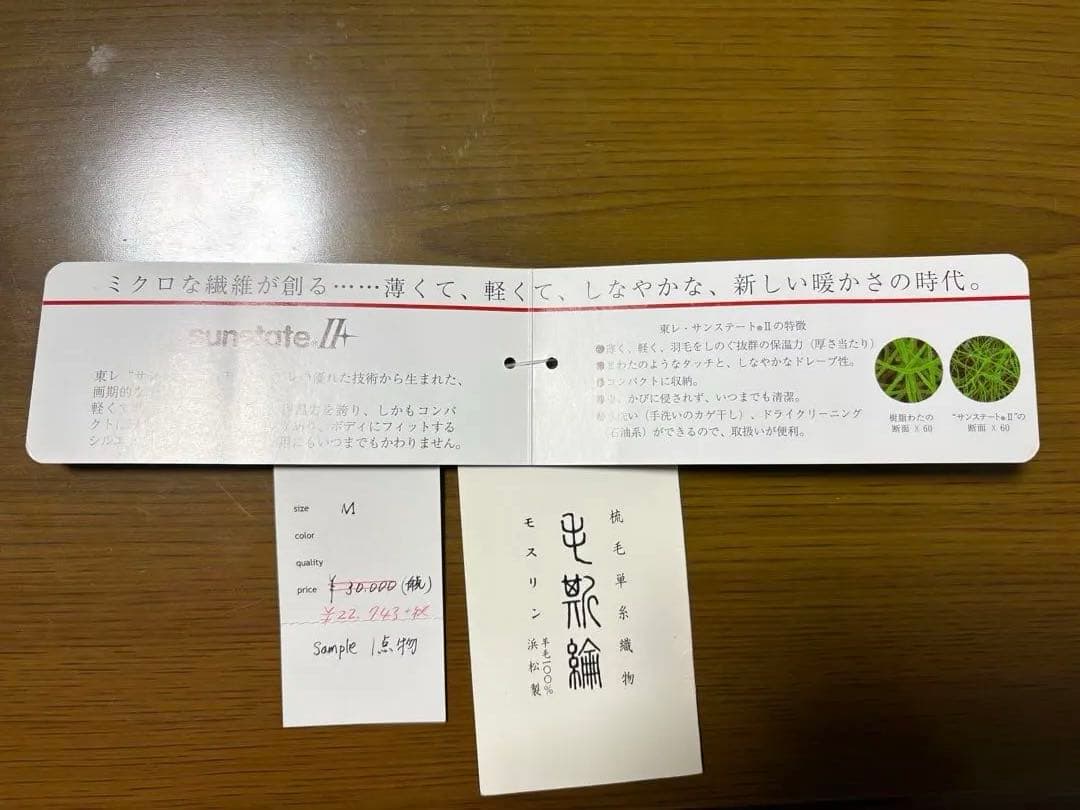 ミクロな繊維が創る……薄くて、軽くて、しなやかな、新しい暖かさの時代。
sunstate II
東レ "サン の優れた技術から生まれた、
画期的な
軽くて を誇り、しかもコンパ
クトに ボディにフィットする
シルエ にもいつまでもかわりません。
東レ・サンステート®IIの特徴
薄く、軽く、羽毛をしのぐ抜群の保温力（厚さ当たり）
わたのようなタッチと、しなやかなドレープ性。
コンパクトに収納。
かびに侵されず、いつまでも清潔。
洗い（手洗いのカゲ干し）、ドライクリーニング
（石油系）ができるので、取扱いが便利。
樹脂わたの
断面 X 60
"サンステート®II"の
断面 X 60
size M
color
quality
price ¥30.000(税)
¥22.743+税
sample 1点物
梳毛単糸織物
毛斯綸
モスリン
羊毛一〇〇%
浜松製